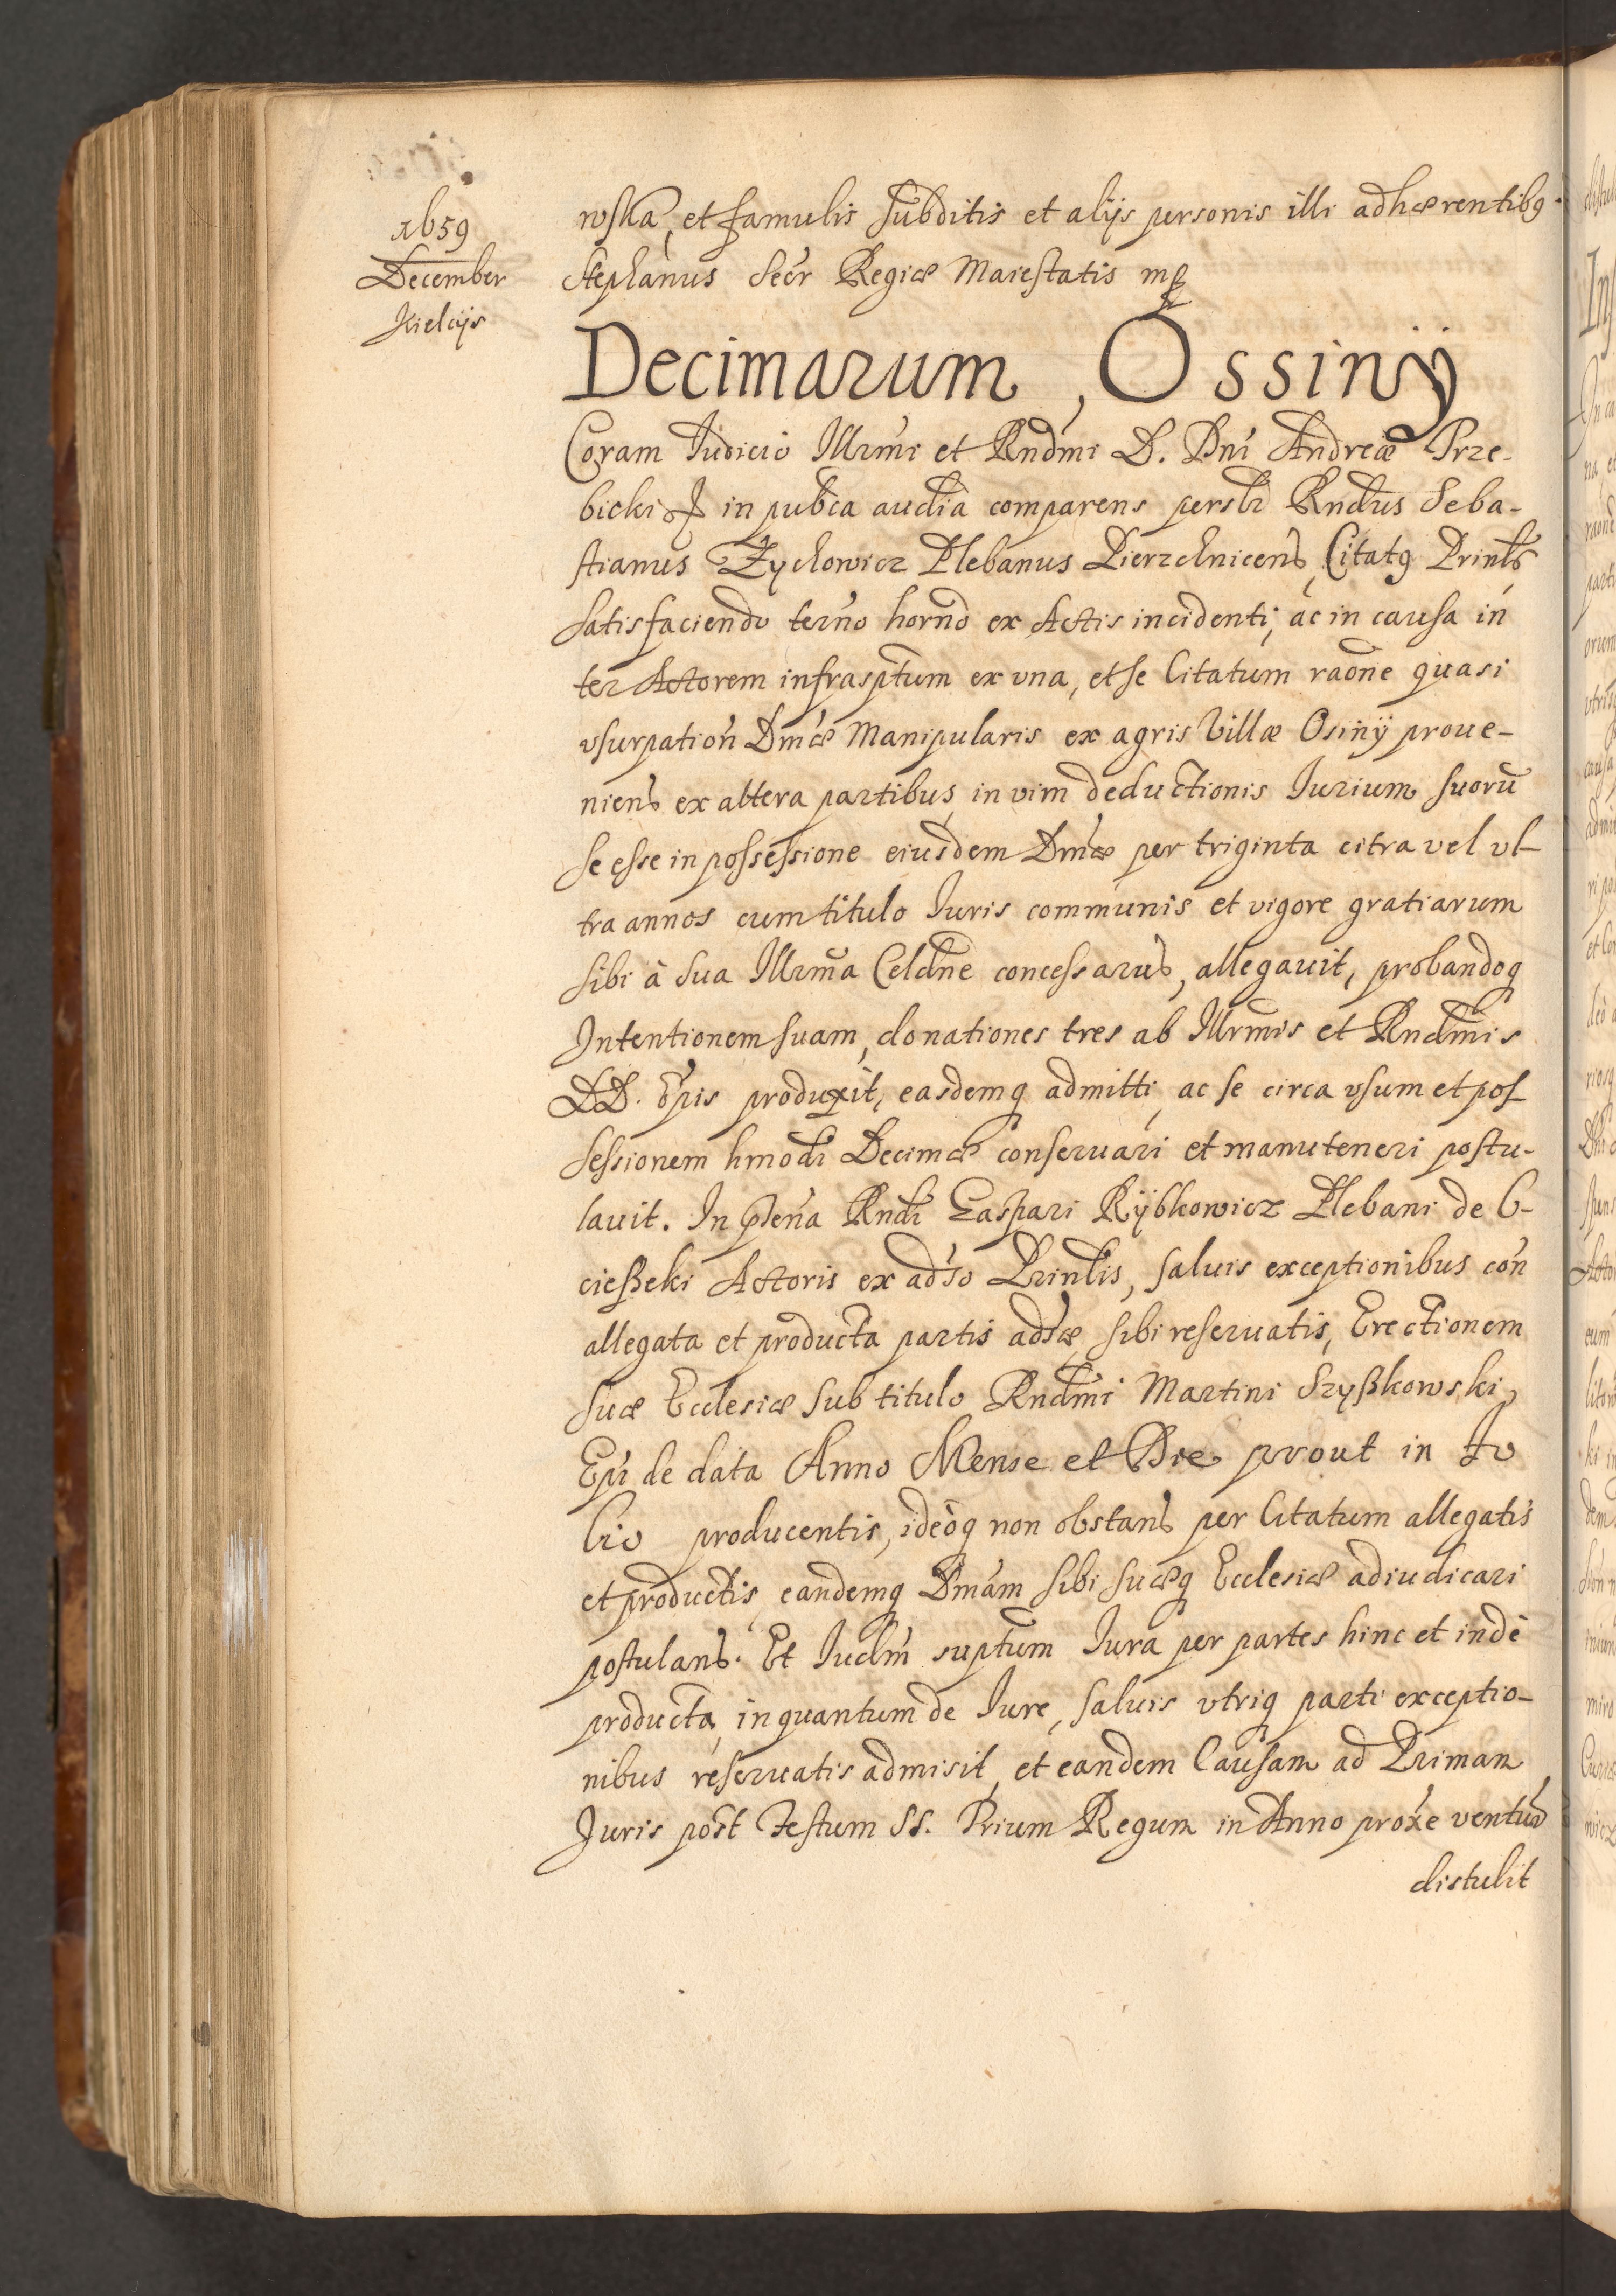 1659
December
Kielcijs
wska, et famulis subditis et alijs personis illi adhærentibq.
Stephanus Secr Regiæ Maiestatis mp
Decimarum, Ossinÿ
Coram Iudicio Illrmi et Rndmi D. Dni Andreæ Trze-
bicki in publca audia comparens persłr Rndus Seba-
stianus Zychowicz Plebanus Pierzchnicens, Citatq Prinłs
satisfaciendo terno horno ex Actis incidenti, ac in causa in
ter Actorem infrasptum ex vna, et se Citatum raone quasi
vsurpation Dmæ Manipularis ex agris Villæ Osinÿ proue-
niens ex altera partibus, in vim deductionis Iurium suoru
se esse in possessione eiusdem Dmæ per triginta citra vel vl-
tra annos cum titulo Iuris communis et vigore gratiarum
sibi à sua Illrma Celdne concessarus, allegauit, probandoq
Intentionem suam, donationes tres ab Illrmis et Rndmis
DD. Epis produxit, easdemq admitti, ac se circa vsum et pos
sessionem hmodi Decimæ conseruari et manuteneri postu-
lauit. In pñtia Rndi Caspari Rÿbkowicz Plebani de C-
cießeki Actoris ex adso Prinlis, saluis exceptionibus con
allegata et producta partis adsæ sibi reseruatis, Erectionem
suæ Ecclesiæ sub titulo Rndmi Martini Szyßkowski,
Epi de data Anno Mense et Die prout in Ao
Cio producentis, ideoq non obstans per Citatum allegatis
et productis, eandemq Dmam sibi suæq Ecclesiæ adiudicari
postulans. Et Iudm suptum Iura per partes hinc et inde
producta, in quantum de Iure, saluis vtriq parti exceptio-
nibus reseruatis admisit, et eandem Causam ad Primam
Iuris post Festum SS. Trium Regum in Anno proxe ventur
distulit